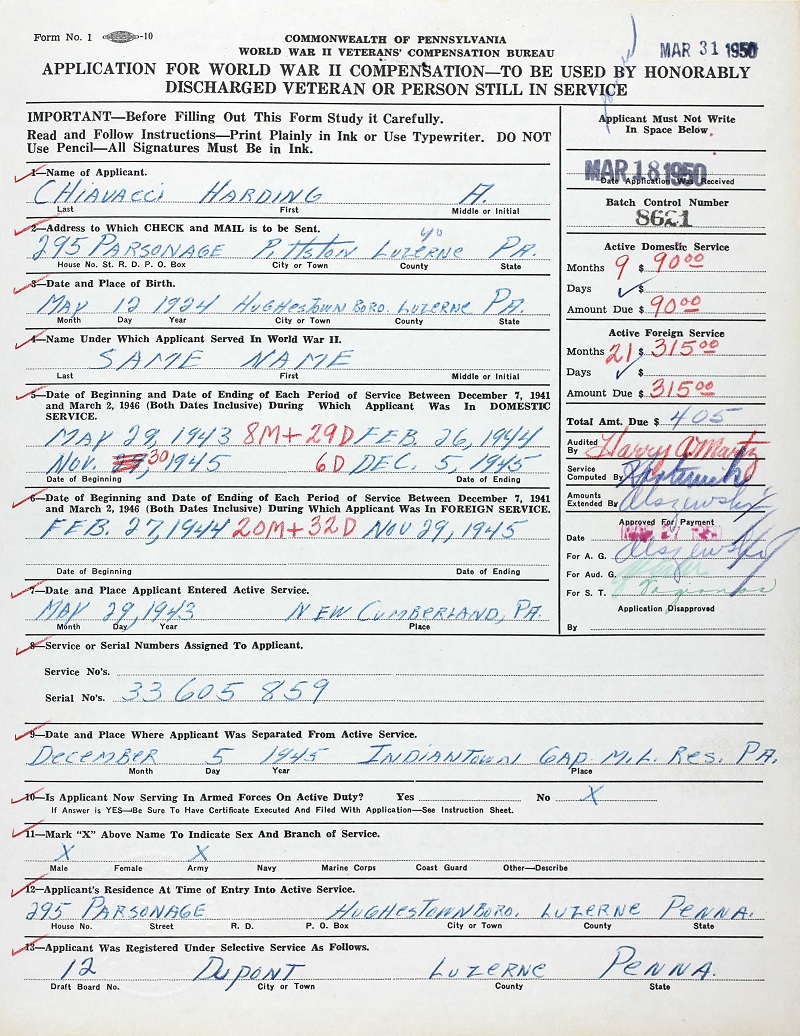 Form No. 1 -10
COMMONWEALTH OF PENNSYLVANIA
WORLD WAR II VETERANS' COMPENSATION BUREAU
MAR 31 1950
APPLICATION FOR WORLD WAR II COMPENSATION—TO BE USED BY HONORABLY
DISCHARGED VETERAN OR PERSON STILL IN SERVICE
IMPORTANT—Before Filling Out This Form Study it Carefully.
Read and Follow Instructions—Print Plainly in Ink or Use Typewriter. DO NOT
Use Pencil—All Signatures Must Be in Ink.
1—Name of Applicant.
CHIAVACCI HARDING A.
Last First Middle or Initial
2—Address to Which CHECK and MAIL is to be Sent.
40
295 PARSONAGE PITTSTON LUZERNE PA.
House No. St. R. D. P. O. Box City or Town County State
3—Date and Place of Birth.
MAY 12 1924 HUGHESTOWN BORO. LUZERNE PA.
Month Day Year City or Town County State
4—Name Under Which Applicant Served In World War II.
SAME NAME
Last First Middle or Initial
5—Date of Beginning and Date of Ending of Each Period of Service Between December 7, 1941
and March 2, 1946 (Both Dates Inclusive) During Which Applicant Was In DOMESTIC
SERVICE.
MAY 29, 1943 8M+29D FEB. 26, 1944
NOV. 30 1945 6D DEC. 5, 1945
Date of Beginning Date of Ending
6—Date of Beginning and Date of Ending of Each Period of Service Between December 7, 1941
and March 2, 1946 (Both Dates Inclusive) During Which Applicant Was In FOREIGN SERVICE.
FEB. 27, 1944 20M+32D NOV 29, 1945
Date of Beginning Date of Ending
7—Date and Place Applicant Entered Active Service.
MAY 29, 1943 NEW CUMBERLAND, PA.
Month Day Year Place
Applicant Must Not Write
In Space Below.
MAR 18 1950
Date Application Was Received
Batch Control Number
8621
Active Domestic Service
Months 9 $ 90 00
Days ✓ $
Amount Due $ 90 00
Active Foreign Service
Months 21 $ 315 00
Days ✓ $
Amount Due $ 315 00
Total Amt. Due $ 405
Audited
By Harry A Martz
Service
Computed By
Amounts
Extended By Olszewski
Approved For Payment
Date
For A. G. Olszewski
For Aud. G.
For S. T.
Application Disapproved
By
8—Service or Serial Numbers Assigned To Applicant.
Service No's.
Serial No's. 33 605 859
9—Date and Place Where Applicant Was Separated From Active Service.
DECEMBER 5 1945 INDIANTOWN GAP MIL. RES. PA.
Month Day Year Place
10—Is Applicant Now Serving In Armed Forces On Active Duty? Yes No X
If Answer is YES—Be Sure To Have Certificate Executed And Filed With Application—See Instruction Sheet.
11—Mark "X" Above Name To Indicate Sex and Branch of Service.
X X
Male Female Army Navy Marine Corps Coast Guard Other—Describe
12—Applicant's Residence At Time of Entry Into Active Service.
295 PARSONAGE HUGHESTOWN BORO. LUZERNE PENNA.
House No. Street R. D. P. O. Box City or Town County State
13—Applicant Was Registered Under Selective Service As Follows.
12 DUPONT LUZERNE PENNA.
Draft Board No. City or Town County State